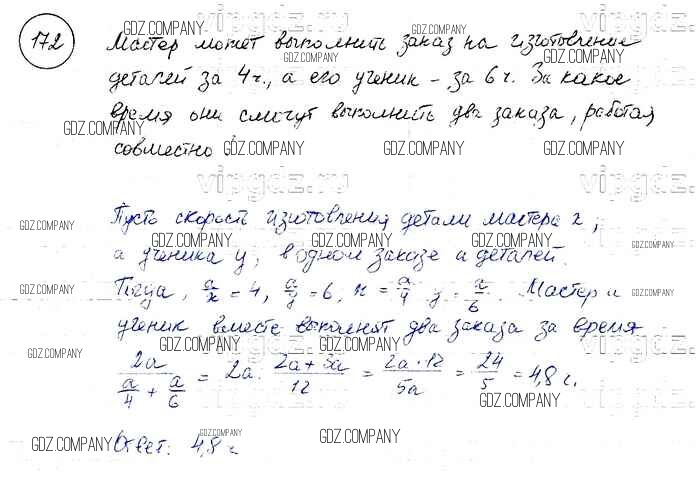 172
Мастер может выполнить заказ на изготовление
деталей за 4 ч., а его ученик – за 6 ч. За какое
время они смогут выполнить два заказа, работая
совместно
Пусть скорость изготовления детали мастера x,
а ученика y, в одном заказе a деталей.
Тогда, a/x = 4, a/y = 6, x = a/4 y = x/6. Мастер и
ученик вместе выполнят два заказа за время
2a/(a/4 + a/6) = 2a · (2a+3a)/12 = 2a·12/5a = 24/5 = 4,8 ч.
Ответ: 4,8 ч
GDZ.COMPANY
vipgdz.ru